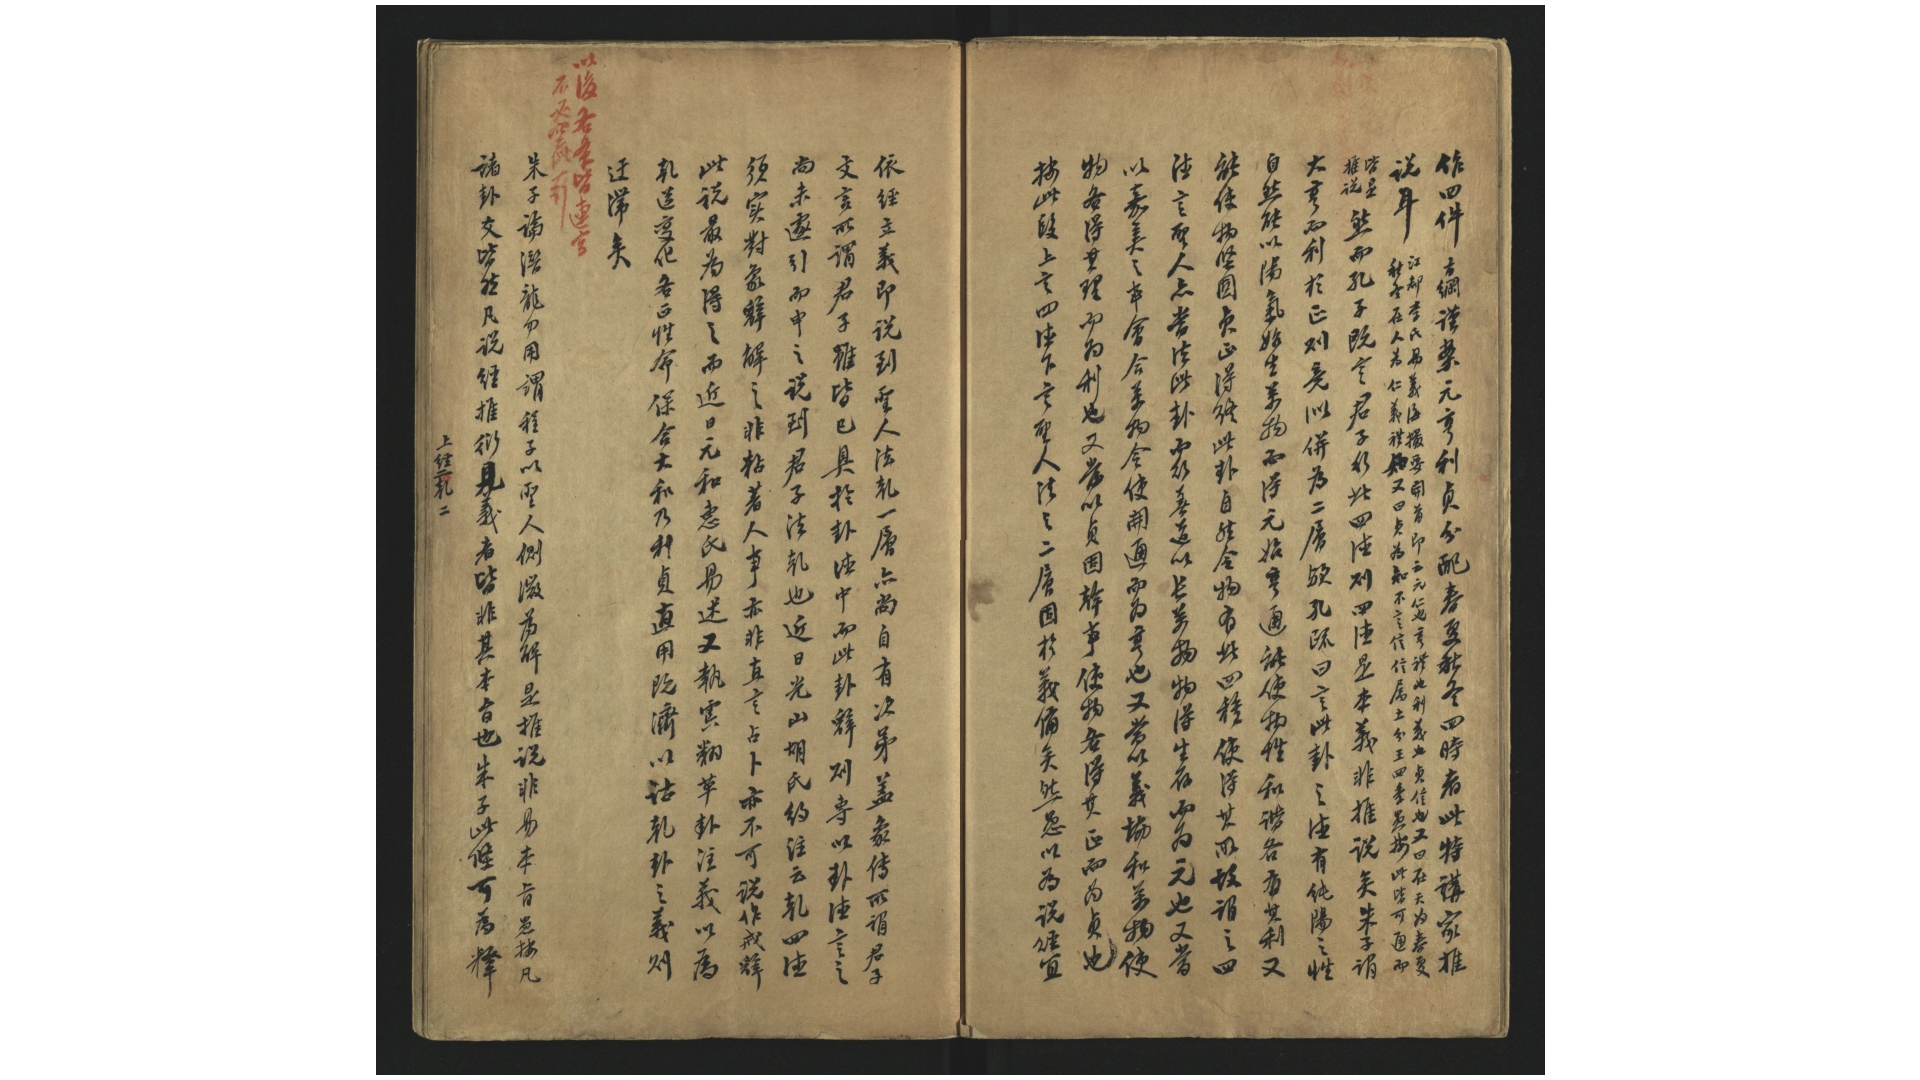 作四件方綱謹案元亨利貞分配春夏秋冬四時者此特講家推
說耳江都李氏易義海撮要開首即云元仁也亨禮也利義也貞信也又曰在天為春夏
秋冬在人為仁義禮知又曰貞為知不言信信屬土分王四季愚按此皆可通而
皆是
推說然而孔子既言君子行此四德則四德是本義非推說矣朱子謂
大亨而利於正則竟似併為二層願孔疏曰言此卦之德有純陽之性
自然能以陽氣始生萬物而得元始亨通能使物性和諧各有其利又
能使物堅固貞正得終此卦自然令物有此四種使得其所故謂之四
德言聖人亦當法此卦而行善道以長萬物物得生存而為元也又當
以嘉美之事會合萬物令使開通而為亨也又當以義協和萬物使
物各得其理而為利也又當以貞固幹事使物各得其正而為貞也
按此段上言四德下言聖人法之二層固於義備矣然愚以為說經宜
依經立義即說到聖人法乾一層亦尚自有次第蓋彖傳所謂君子
文言所謂君子雖皆已具於卦德中而此卦辭則專以卦德言之
尚未遽引而申之說到君子法乾也近日光山胡氏約注云乾四德
須實對彖辭解之非粘著人事亦非直言占卜亦不可說作戒辭
此說最為得之而近日元和惠氏易述又執虞翻革卦注義以為
乾道變化各正性命保合大和乃利貞直用既濟以詁乾卦之義則
迂滯矣
以後各条皆連寫
不必空
朱子論潛龍勿用謂程子以聖人側微為解是推說非易本旨愚按凡
諸卦爻皆然凡說經推衍見義者皆非其本旨也朱子此條可為釋
上經 乾 二